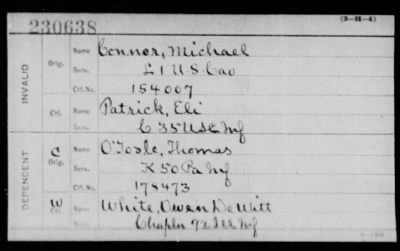 230638
(3-H-4)
INVALID
Orig. Name Connor, Michael
Serv. L 1 U S Cav
Ctf. No. 154007
Ctf. Name Patrick, Eli
Serv. C 35 USC Inf
DEPENDENT
C Orig. Name O'Toole, Thomas
Serv. K 50 Pa Inf
Ctf. No. 178473
W Ctf. Name White, Owen DeWitt
Chapln 92 Ills Inf